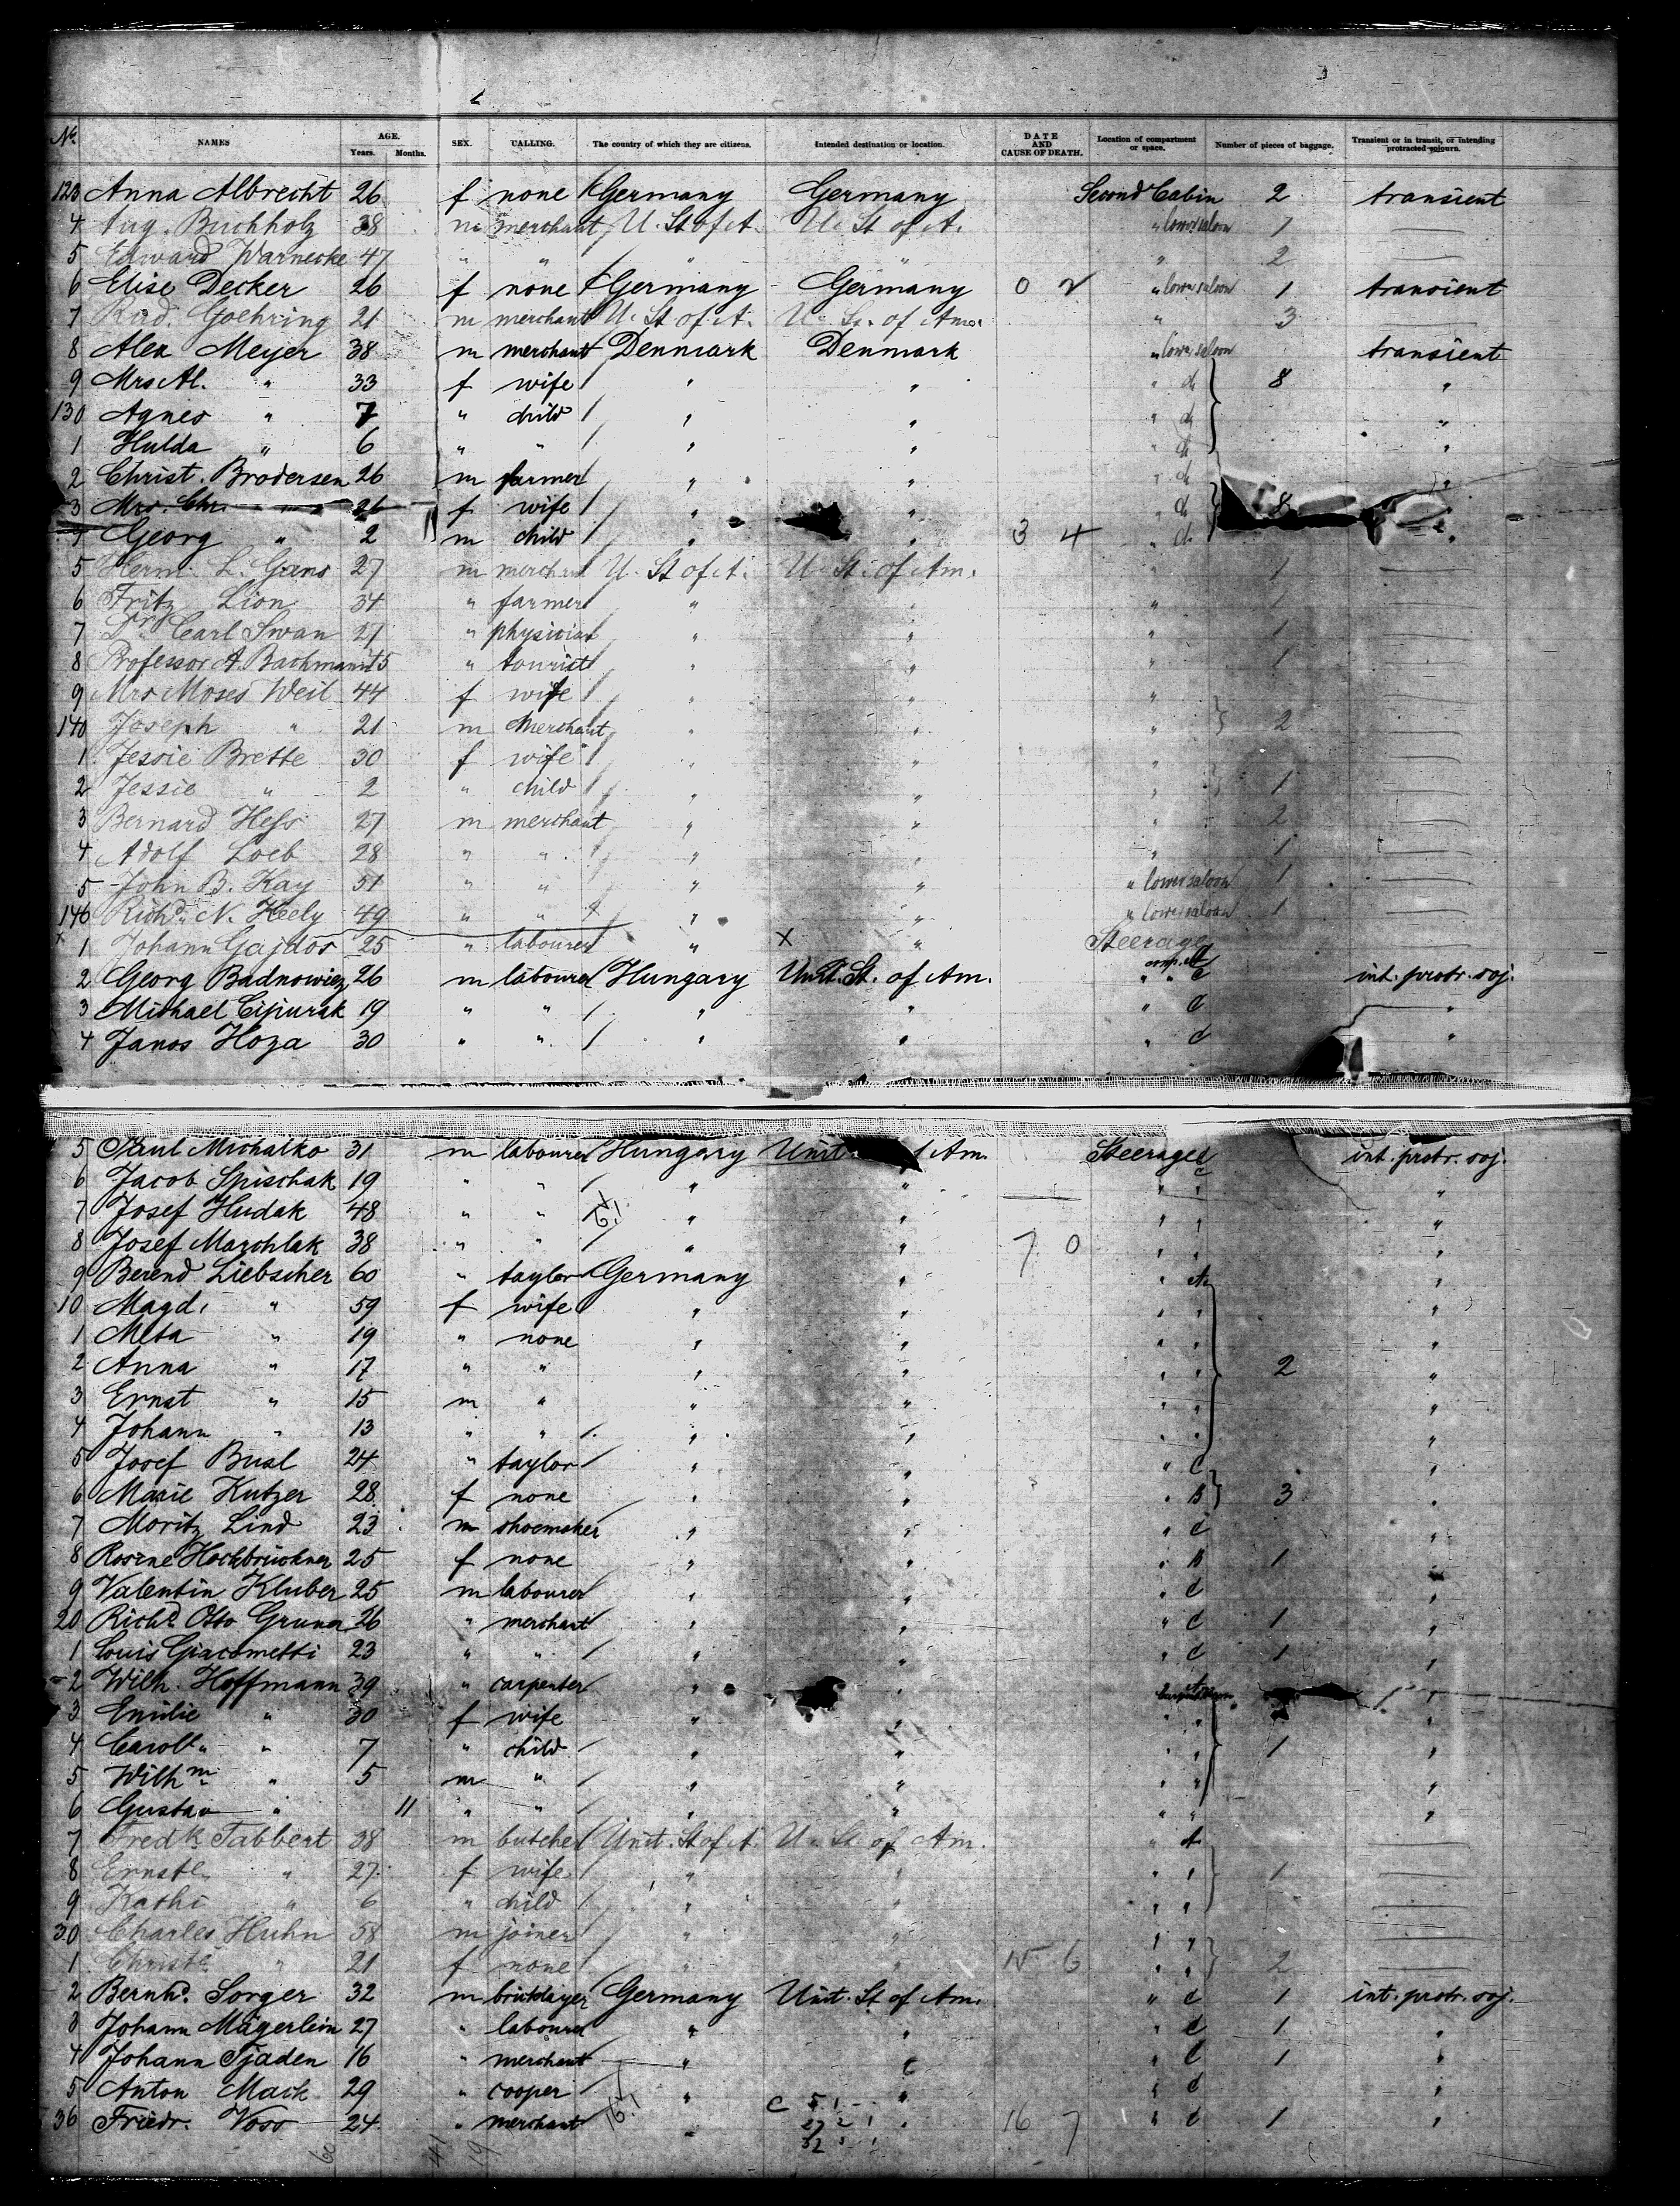 No. NAMES AGE. Years. Months. SEX. CALLING. The country of which they are citizens. Intended destination or location. DATE AND CAUSE OF DEATH. Location of compartment or space. Number of pieces of baggage. Transient or in transit, or intending protracted sojourn.
123 Anna Albrecht 26 f none Germany Germany Second Cabin 2 transient
4 Aug. Buchholz 38 m merchant U. St of A. U. St of A. " lower saloon 1 —
5 Edward Warnecke 47 " " " " " 2 —
6 Elise Decker 26 f none Germany Germany 0 2 " lower saloon 1 transient
7 Rud. Goehring 21 m merchant U. St of A. U. St. of Am. " 3 —
8 Alex Meyer 38 m merchant Denmark Denmark " lower saloon transient
9 Mrs Al. " 33 f wife " " " do 8 "
130 Agnes " 7 " child " " " do "
1 Hulda " 6 " " " " " do "
2 Christ. Brodersen 26 m farmer " " " do "
3 Mrs. Chr. " 26 f wife " " " do 8
4 Georg " 2 m child " " 3 4 " do "
5 Herm. L. Gans 27 m merchant U. St of A. U. St. of Am. " 1 —
6 Fritz Lion 34 " farmer " " " 1 —
7 Dr. Carl Swan 27 " physician " " " 1 —
8 Professor A. Bachmann " tourist " " " 1 —
9 Mrs Moses Weil 44 f wife " " " —
140 Joseph " 21 m merchant " " " 2 —
1 Jessie Brette 30 f wife " " " —
2 Jessie " 2 " child " " " 1 —
3 Bernard Hess 27 m merchant " " " 2 —
4 Adolf Loeb 28 " " " " " 1 —
5 John B. Kay 51 " " " " " lower saloon 1 —
146 Richd. N. Heely 49 " " " " " lower saloon 1 —
x 1 Johann Gajdos 25 " labourer " x " Steerage
2 Georg Badnowiez 26 m labourer Hungary Unit. St. of Am. " " C int. protr. soj.
3 Michael Cipurak 19 " " " " " C "
4 Janos Hoza 30 " " " " " C "
5 Paul Michalko 31 m labourer Hungary Unit. of Am. Steerage C int. protr. soj.
6 Jacob Spischak 19 " " " " " " "
7 Josef Hudak 48 " " " " " " "
8 Josef Marchlak 38 " " " " 7 0 " " "
9 Berend Liebscher 60 " taylor Germany " " A "
10 Magd. " 59 f wife " " " " "
1 Meta " 19 " none " " " " "
2 Anna " 17 " " " " " " 2 "
3 Ernst " 15 m " " " " " "
4 Johann " 13 " " " " " " "
5 Josef Busl 24 " taylor " " " C "
6 Marie Kutzer 28 f none " " " B 3 "
7 Moritz Lind 23 m shoemaker " " " C "
8 Rosine Hochbrückner 25 f none " " " B 1 "
9 Valentin Kluber 25 m labourer " " " C "
20 Richd. Otto Gruner 26 " merchant " " " C 1 "
1 Louis Giacometti 23 " " " " " C 1 "
2 Wilh. Hoffmann 39 " carpenter " " A "
3 Emilie " 30 f wife " " " " "
4 Carole. " 7 " child " " " " 1 "
5 Wilhm. " 5 m " " " " " "
6 Gustav " 11 " " " " " " "
7 Fredk. Tabbert 38 m butcher Unit. St of A. U. St. of Am. " A —
8 Ernste. " 27 f wife " " " " 1 —
9 Kathi " 6 " child " " " " —
30 Charles Huhn 58 m joiner " " " " —
1 Christe. " 21 f none " " 15 6 " " 2 —
2 Bernhd. Sorger 32 m bricklayer Germany Unit. St of Am. " C 1 int. protr. soj.
3 Johann Mägerlein 27 " labourer " " " C 1 "
4 Johann Tjaden 16 " merchant " " " C 1 "
5 Anton Mack 29 " cooper " " " C "
36 Friedr. Voss 24 " merchant " " 16 7 " C 1 "